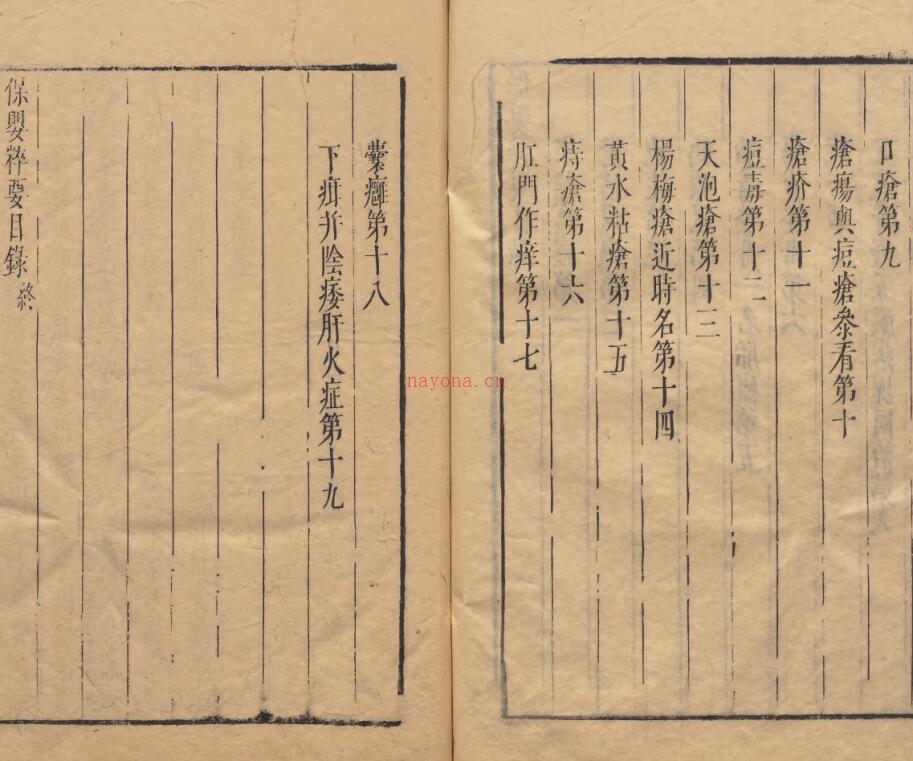 口瘡第九
瘡瘍與痘瘡叅看第十
瘡疥第十一
痘毒第十二
天泡瘡第十三
楊梅瘡近時名第十四
黃水粘瘡第十五
痔瘡第十六
肛門作痒第十七
囊癰第十八
下疳并陰痿肝火症第十九
保嬰粹要目錄終
nayona.cn